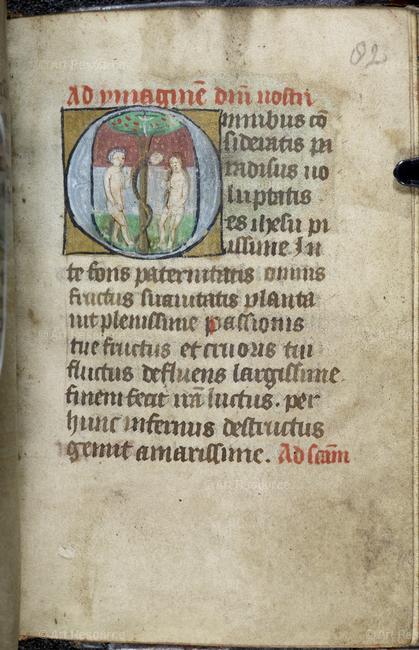 82
Ad ymaginē dn̄i nostri
Omnibus cō
sideratis pa
radisus uo
luptatis
es ihesu pi
issime In
te fons paternitatis omnis
fructus suauitatis planta
uit plenissime passionis
tue fructus et cruoris tui
fluctus defluens largissime.
finem fecit luctus. per
hunc infernus destructus
gemit amarissime. Ad scām
Art Resource